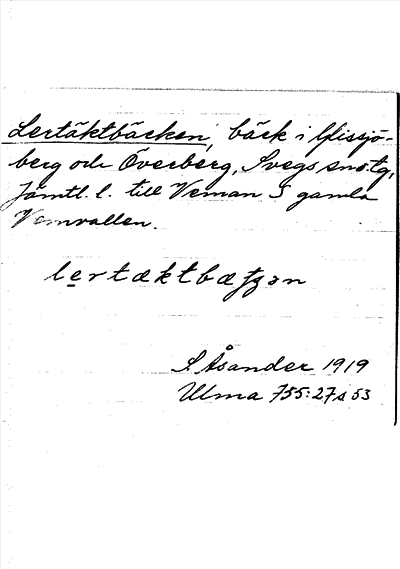 Lertäktbäcken, bäck i Missjö-
berg och Överberg, Svegs sns.tg,
Jämtl. l. till Veman S gamla
Vemvallen.
lertæktbæʈʂən
S. Åsander 1919
Ulma 755:27 s 53